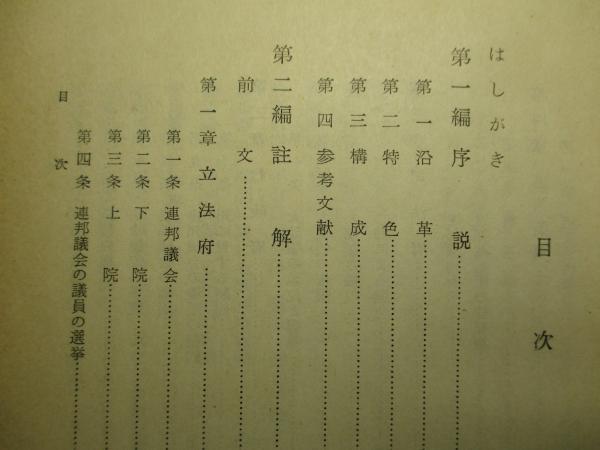 目次
はしがき
第一編 序説
第一 沿革
第二 特色
第三 構成
第四 参考文献
第二編 註解
前文
第一章 立法府
第一条 連邦議会
第二条 下院
第三条 上院
第四条 連邦議会の議員の選挙
目次